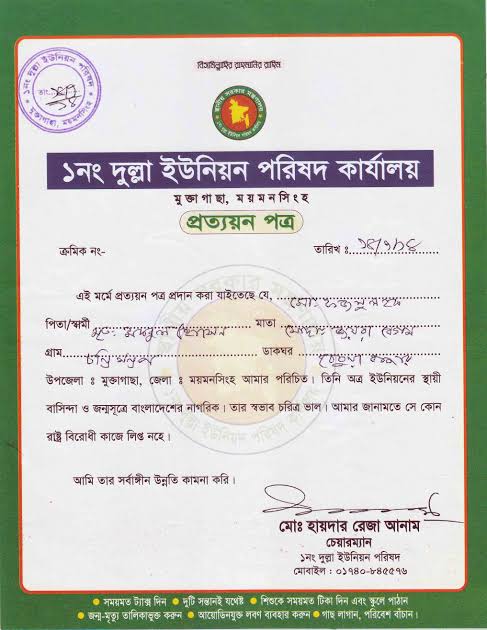 বিসমিল্লাহির রাহমানির রাহিম
১নং দুল্লা ইউনিয়ন পরিষদ
তাং
মুক্তাগাছা, ময়মনসিংহ
১নং দুল্লা ইউনিয়ন পরিষদ কার্যালয়
মুক্তাগাছা, ময়মনসিংহ
প্রত্যয়ন পত্র
ক্রমিক নং-
তারিখ ঃ
এই মর্মে প্রত্যয়ন পত্র প্রদান করা যাইতেছে যে,
পিতা/স্বামী মাতা
গ্রাম ডাকঘর
উপজেলা ঃ মুক্তাগাছা, জেলা ঃ ময়মনসিংহ আমার পরিচিত। তিনি অত্র ইউনিয়নের স্থায়ী
বাসিন্দা ও জন্মসূত্রে বাংলাদেশের নাগরিক। তার স্বভাব চরিত্র ভাল। আমার জানামতে সে কোন
রাষ্ট্র বিরোধী কাজে লিপ্ত নহে।
আমি তার সর্বাঙ্গীন উন্নতি কামনা করি।
মোঃ হায়দার রেজা আনাম
চেয়ারম্যান
১নং দুল্লা ইউনিয়ন পরিষদ
মোবাইল : ০১৭৪০-৮৪৫৫৭৬
● সময়মত ট্যাক্স দিন ● দুটি সন্তানই যথেষ্ট ● শিশুকে সময়মত টিকা দিন এবং স্কুলে পাঠান
● জন্ম-মৃত্যু তালিকাভুক্ত করুন ● আয়োডিনযুক্ত লবণ ব্যবহার করুন ● গাছ লাগান, পরিবেশ বাঁচান।